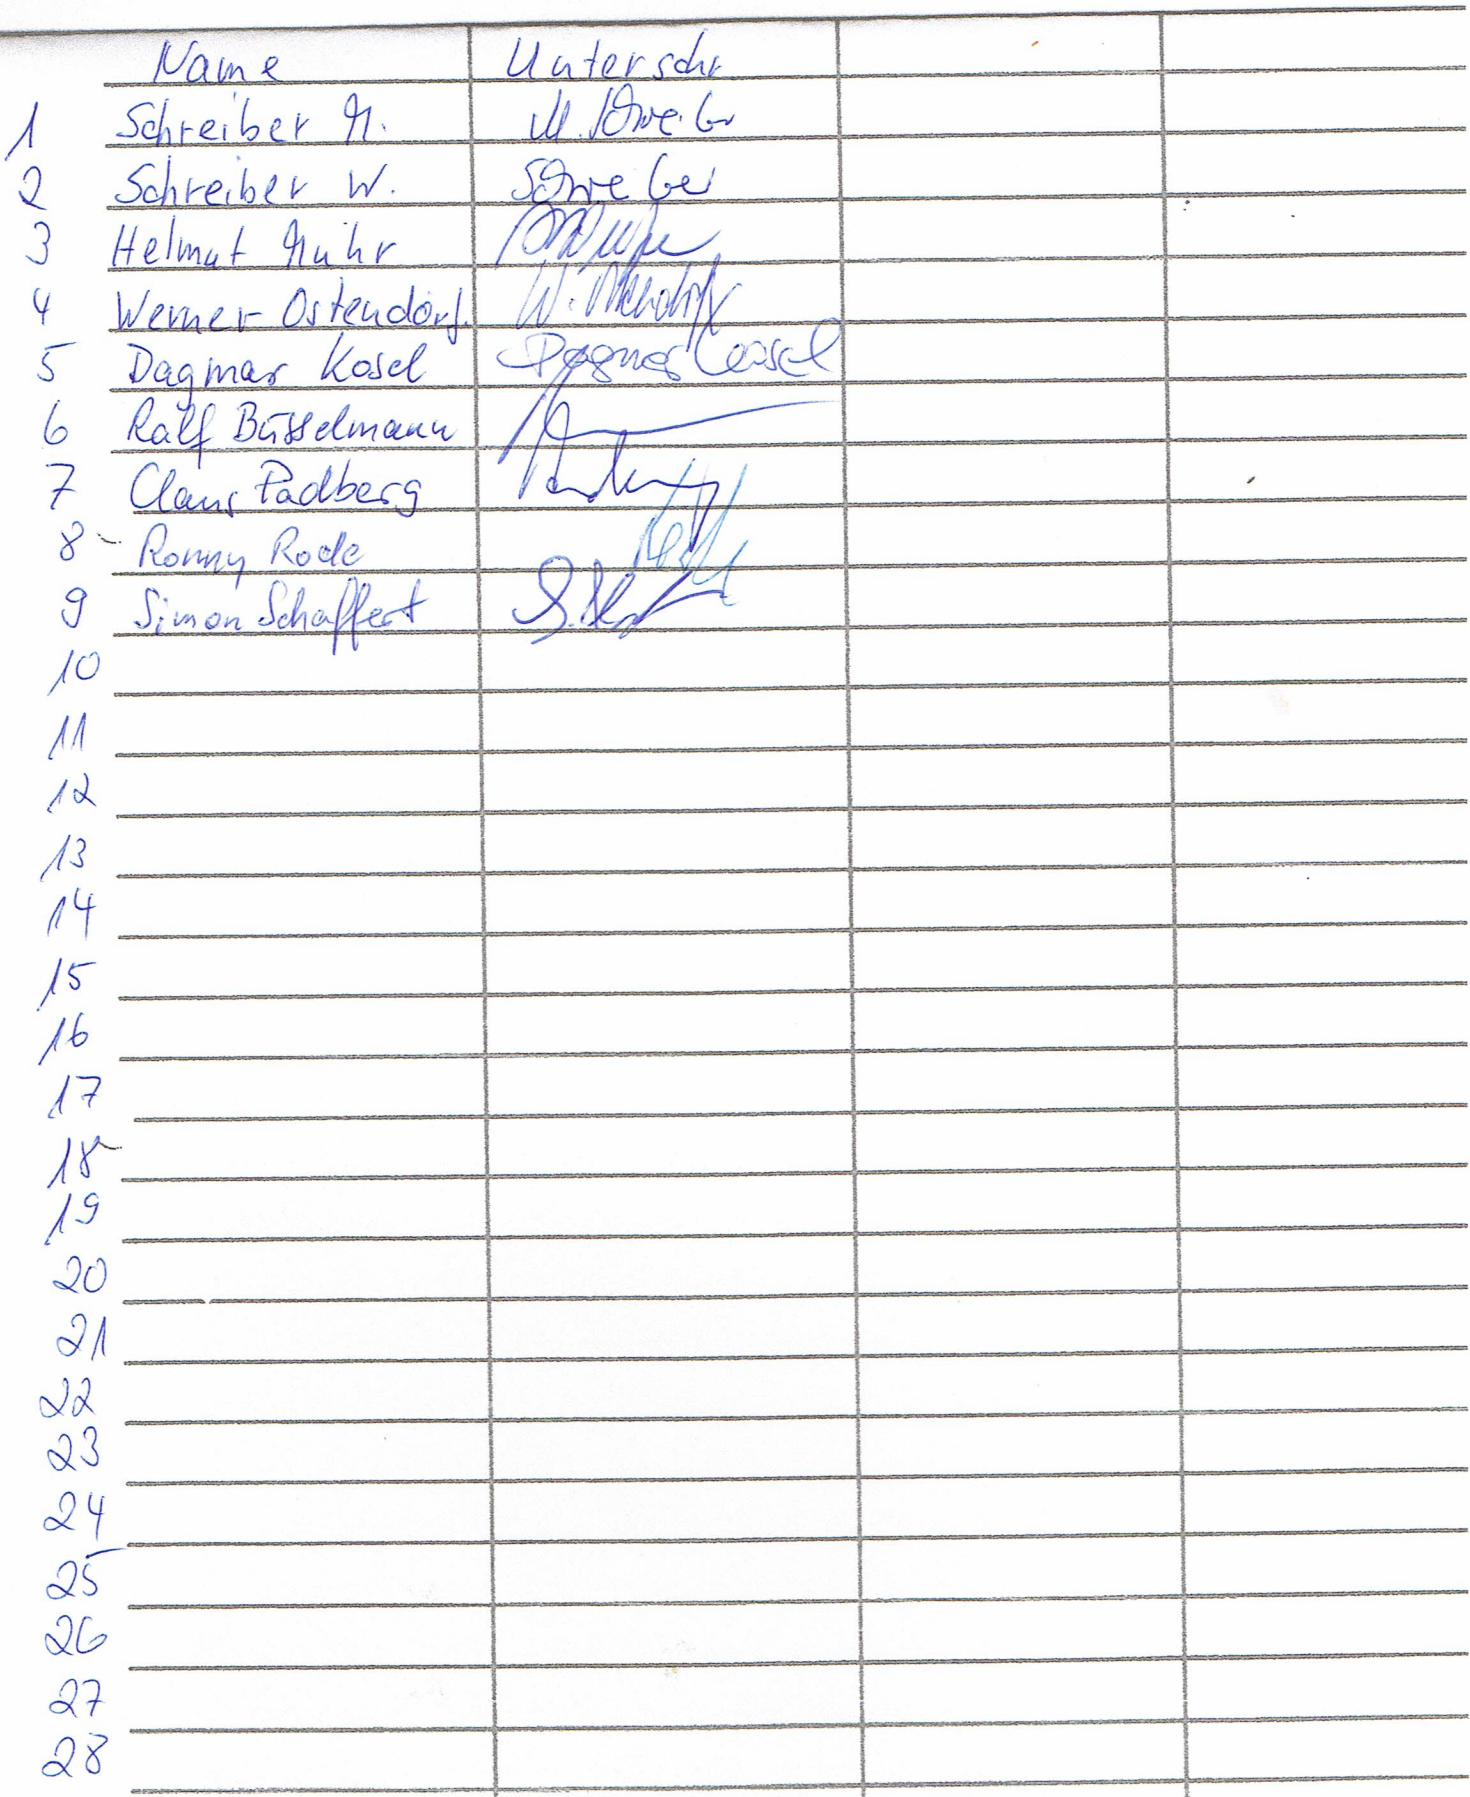 Name Unterschr
1 Schreiber M. M. Schreiber
2 Schreiber W. Schreiber
3 Helmut Muhr
4 Werner Ostendorf. W. Ostendorf
5 Dagmar Kosel Dagmar Kosel
6 Ralf Büsselmann
7 Claus Padberg
8 Ronny Rode
9 Simon Schaffert
10
11
12
13
14
15
16
17
18
19
20
21
22
23
24
25
26
27
28